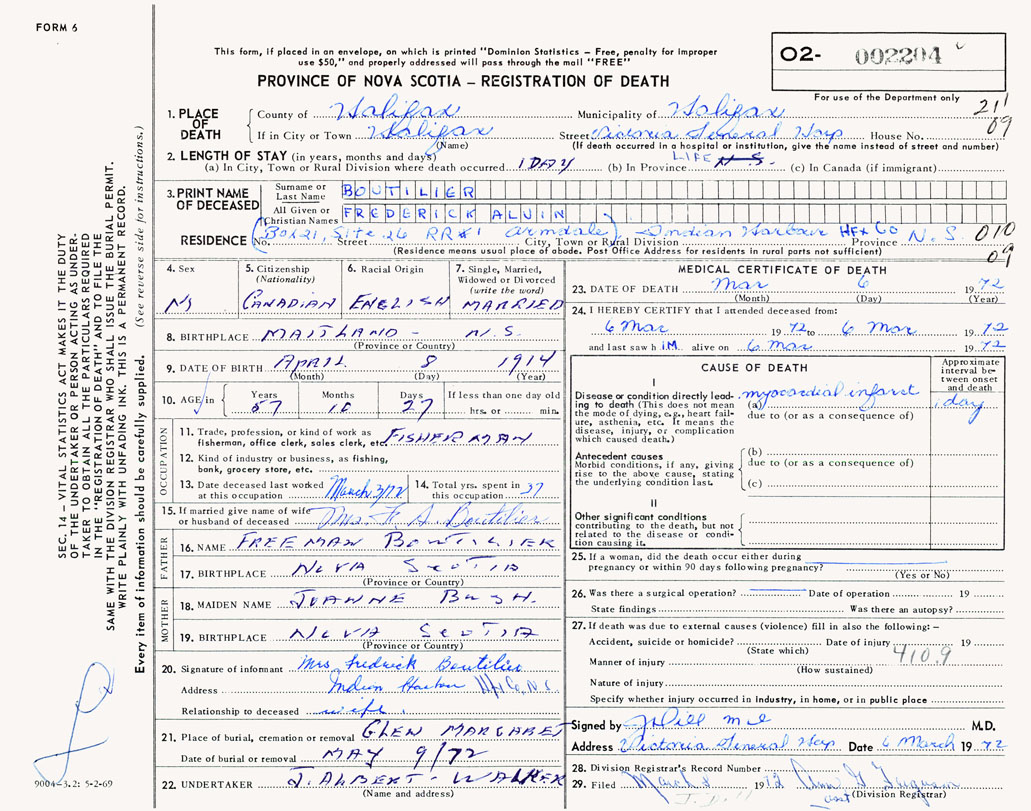 FORM 6
This form, if placed in an envelope, on which is printed "Dominion Statistics – Free, penalty for improper
use $50," and properly addressed will pass through the mail "FREE"
PROVINCE OF NOVA SCOTIA – REGISTRATION OF DEATH
02- 002204
For use of the Department only
211
09
1. PLACE OF DEATH
County of Halifax Municipality of Halifax
If in City or Town Halifax Street Victoria General Hosp House No.
(Name) (If death occurred in a hospital or institution, give the name instead of street and number)
2. LENGTH OF STAY (in years, months and days)
(a) In City, Town or Rural Division where death occurred 1 DAY (b) In Province LIFE N.S. (c) In Canada (if immigrant)
3. PRINT NAME OF DECEASED
Surname or Last Name BOUTILIER
All Given or Christian Names FREDERICK ALVIN
RESIDENCE (Box 21, Site 26 RR#1 Armdale) Indian Harbour HFX Co N.S. 010
No. Street City, Town or Rural Division Province
(Residence means usual place of abode. Post Office Address for residents in rural parts not sufficient) 09
4. Sex
5. Citizenship (Nationality) CANADIAN
6. Racial Origin ENGLISH
7. Single, Married, Widowed or Divorced (write the word) MARRIED
8. BIRTHPLACE MAITLAND – N.S.
(Province or Country)
9. DATE OF BIRTH APRIL 8 1914
(Month) (Day) (Year)
10. AGE in Years 57 Months 10 Days 27 If less than one day old hrs. or min.
OCCUPATION
11. Trade, profession, or kind of work as
fisherman, office clerk, sales clerk, etc. FISHERMAN
12. Kind of industry or business, as fishing,
bank, grocery store, etc.
13. Date deceased last worked at this occupation March 3/72
14. Total yrs. spent in this occupation 37
15. If married give name of wife
or husband of deceased Mrs. F. A. Boutilier
FATHER
16. NAME FREEMAN BOUTILIER
17. BIRTHPLACE NOVA SCOTIA
(Province or Country)
MOTHER
18. MAIDEN NAME JOANNE BUSH.
19. BIRTHPLACE NOVA SCOTIA
(Province or Country)
20. Signature of informant Mrs Fredrick Boutilier
Address Indian Harbour Hfx Co. N.S.
Relationship to deceased wife.
21. Place of burial, cremation or removal GLEN MARGARET
Date of burial or removal MAY 9/72
22. UNDERTAKER J. ALBERT – WALKER
(Name and address)
MEDICAL CERTIFICATE OF DEATH
23. DATE OF DEATH Mar 6 1972
(Month) (Day) (Year)
24. I HEREBY CERTIFY that I attended deceased from:
6 Mar 1972 to 6 Mar 1972
and last saw h IM alive on 6 Mar 1972
CAUSE OF DEATH
Approximate interval between onset and death
I
Disease or condition directly leading to death (This does not mean the mode of dying, e.g., heart failure, asthenia, etc. It means the disease, injury, or complication which caused death.)
(a) myocardial infarct 1 day
due to (or as a consequence of)
Antecedent causes
Morbid conditions, if any, giving rise to the above cause, stating the underlying condition last.
(b)
due to (or as a consequence of)
(c)
II
Other significant conditions
contributing to the death, but not related to the disease or condition causing it.
25. If a woman, did the death occur either during
pregnancy or within 90 days following pregnancy?
(Yes or No)
26. Was there a surgical operation? Date of operation 19
State findings Was there an autopsy?
27. If death was due to external causes (violence) fill in also the following: –
Accident, suicide or homicide? Date of injury 19
(State which) 410.9
Manner of injury
(How sustained)
Nature of injury
Specify whether injury occurred in industry, in home, or in public place
Signed by M.D.
Address Victoria General Hosp Date 6 March 1972
28. Division Registrar's Record Number
29. Filed March 8 1972
(Division Registrar)
SEC. 14 – VITAL STATISTICS ACT MAKES IT THE DUTY
OF THE UNDERTAKER OR PERSON ACTING AS UNDER-
TAKER TO OBTAIN ALL THE PARTICULARS REQUIRED
IN THE "REGISTRATION OF DEATH" AND FILE THE
SAME WITH THE DIVISION REGISTRAR WHO SHALL ISSUE THE BURIAL PERMIT.
WRITE PLAINLY WITH UNFADING INK. THIS IS A PERMANENT RECORD.
Every item of information should be carefully supplied. (See reverse side for instructions.)
9004-3.2: 5-2-69